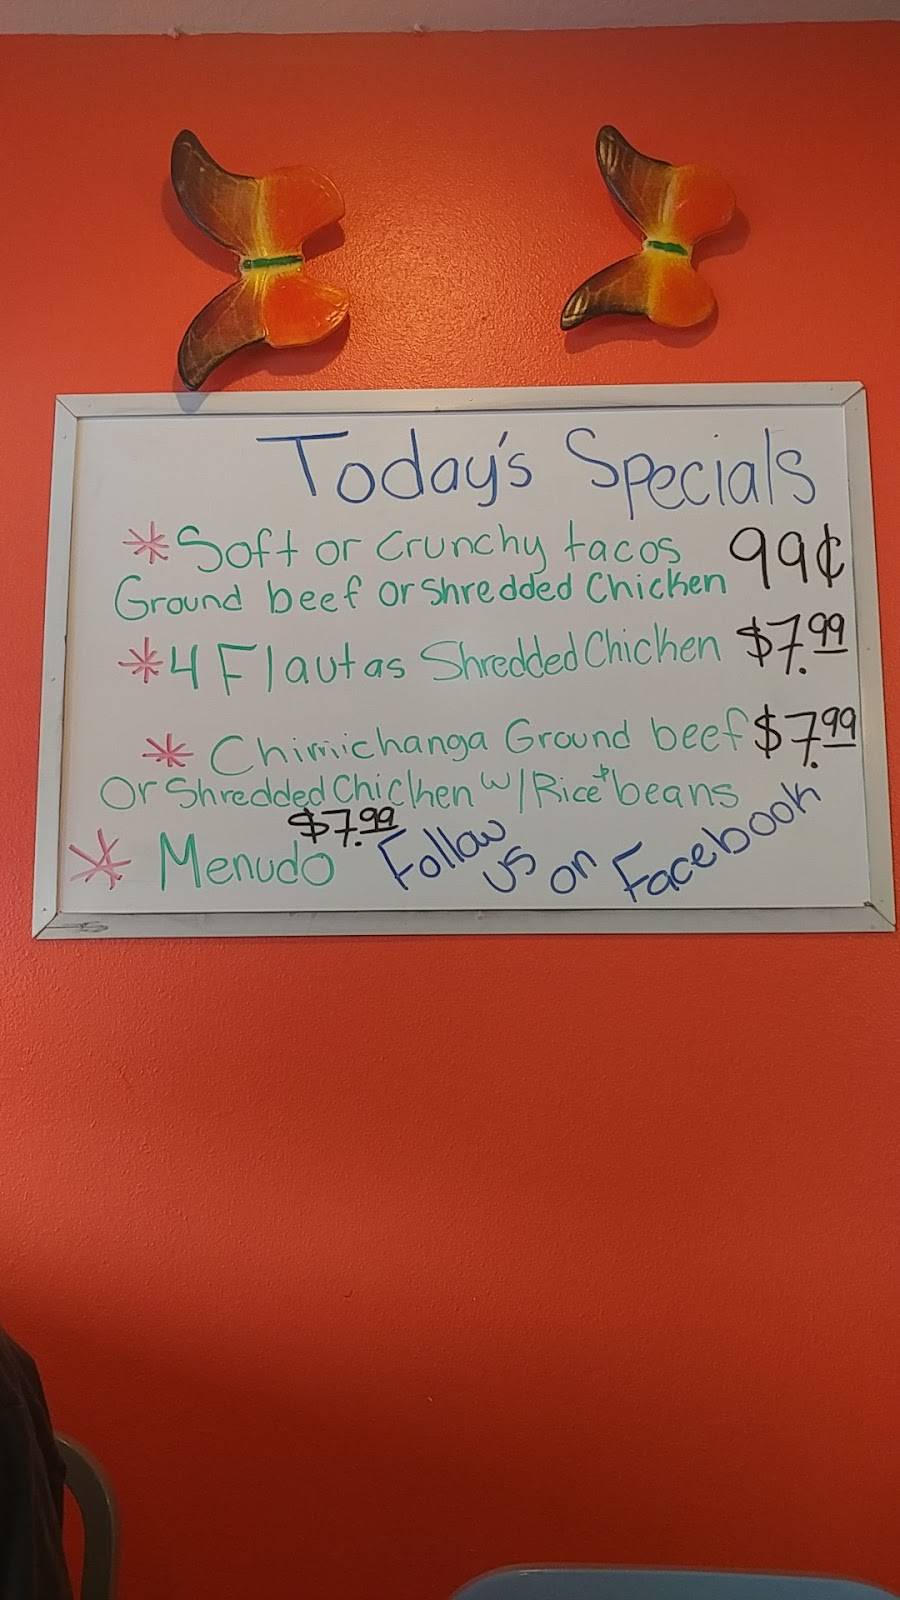 Today's Specials
*Soft or crunchy tacos 99¢
Ground beef or shredded Chicken
*4 Flautas Shredded Chicken $7.99
* Chimichanga Ground beef $7.99
Or Shredded Chicken w/Rice + beans
* Menudo $7.99
Follow us on Facebook